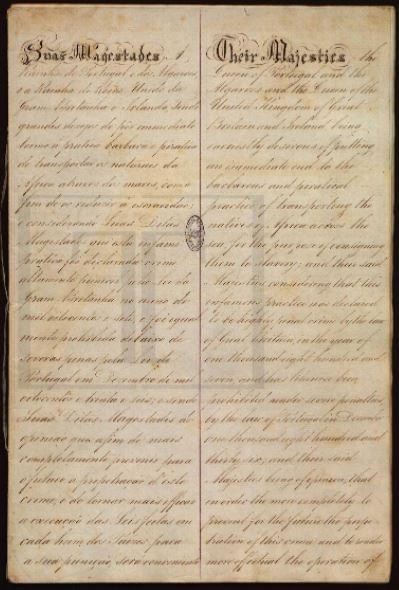 Suas Magestades A
Rainha de Portugal e dos Algarves
e a Rainha do Reino Unido da
Gram Bretanha e Irlanda tendo
grandes desejos de pôr immediato
termo á pratica barbara e piratica
de transportar os naturaes da
Africa atravez dos mares, com o
fim de os reduzir á escravidão;
e considerando Suas Ditas
Magestades que esta infame
pratica foi declarada crime
altamente punivel pela Lei da
Gram Bretanha no anno de
mil oitocentos e sete, e foi igual
mente prohibida debaixo de
severas penas pela Lei de
Portugal em Dezembro de mil
oitocentos e trinta e seis; e sendo
Suas Ditas Magestades de
opinião que afim de mais
completamente prevenir para
o futuro a perpetração d'este
crime, e de tornar mais efficaz
a execução das Leis feitas em
cada hum dos Paizes para
a sua punição, será conveniente
Their Majesties the
Queen of Portugal and the
Algarves and the Queen of the
United Kingdom of Great
Britain and Ireland being
earnestly desirous of putting
an immediate end to the
barbarous and piratical
practice of transporting the
natives of Africa across the
sea, for the purpose of consigning
them to slavery; and their said
Majesties considering that this
infamous practice was declared
to be highly penal crime by the law
of Great Britain, in the year of
one thousand eight hundred and
seven, and has likewise been
prohibited under severe penalties,
by the law of Portugal in December
one thousand eight hundred and
thirty six; and their said
Majesties being of opinion, that
in order the more completely to
prevent for the future the perpe
tration of this crime, and to render
more effectual the operation of